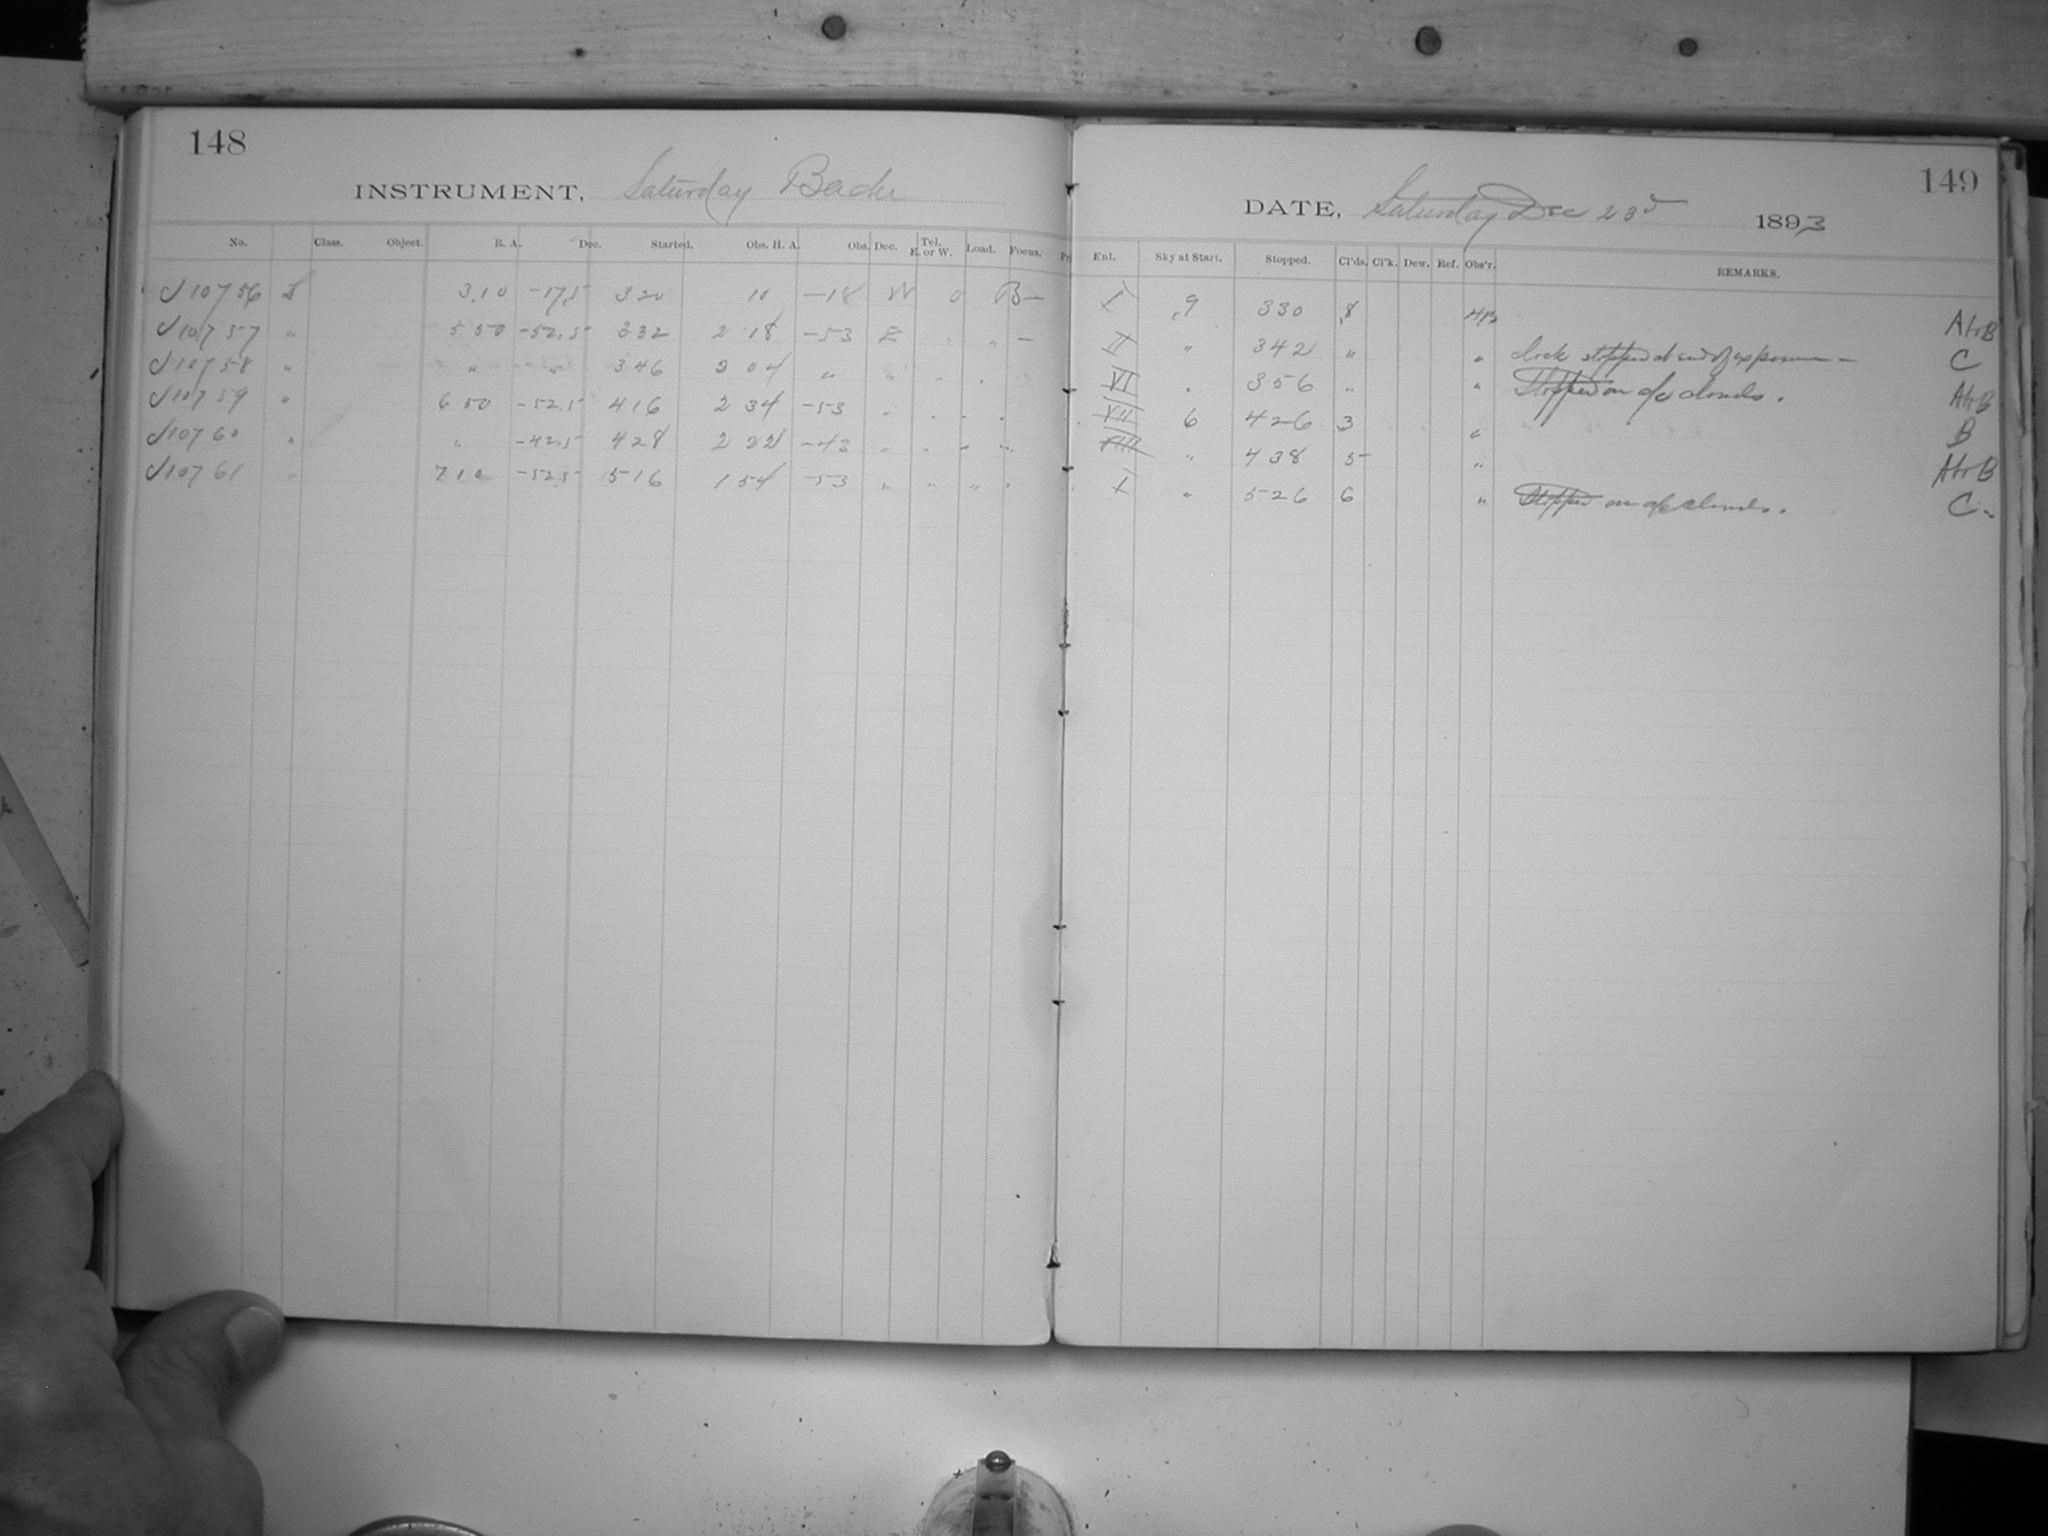 148
INSTRUMENT, Saturday Bache
No. Class. Object. R. A. Dec. Started. Obs. H. A. Obs. Dec. Tel. E. or W. Load. Focus.
10756 3.10 -17.5 320 10 -18 W 0 B-
10757 " 5 50 -52.5 332 2 18 -53 E " " -
10758 " " " 346 2 04 " " " "
10759 " 6 50 -52.5 416 2 34 -53 " " " "
10760 " " -42.5 428 2 22 -43 " " " "
10761 " 7 10 -52.5 516 1 54 -53 " " " "
149
DATE, Saturday Dec 23d 1893
Enl. Sky at Start. Stopped. Cl'ds. Cl'k. Dew. Ref. Obs'r. REMARKS.
I 9 330 8 A+B
II " 342 " " Clock stopped at end of exposure - C
VI " 356 " " Stopped on a/c clouds. A+B
VII 6 426 3 " B
VIII " 438 5 " A+B
X " 526 6 " Stopped on a/c clouds. C-